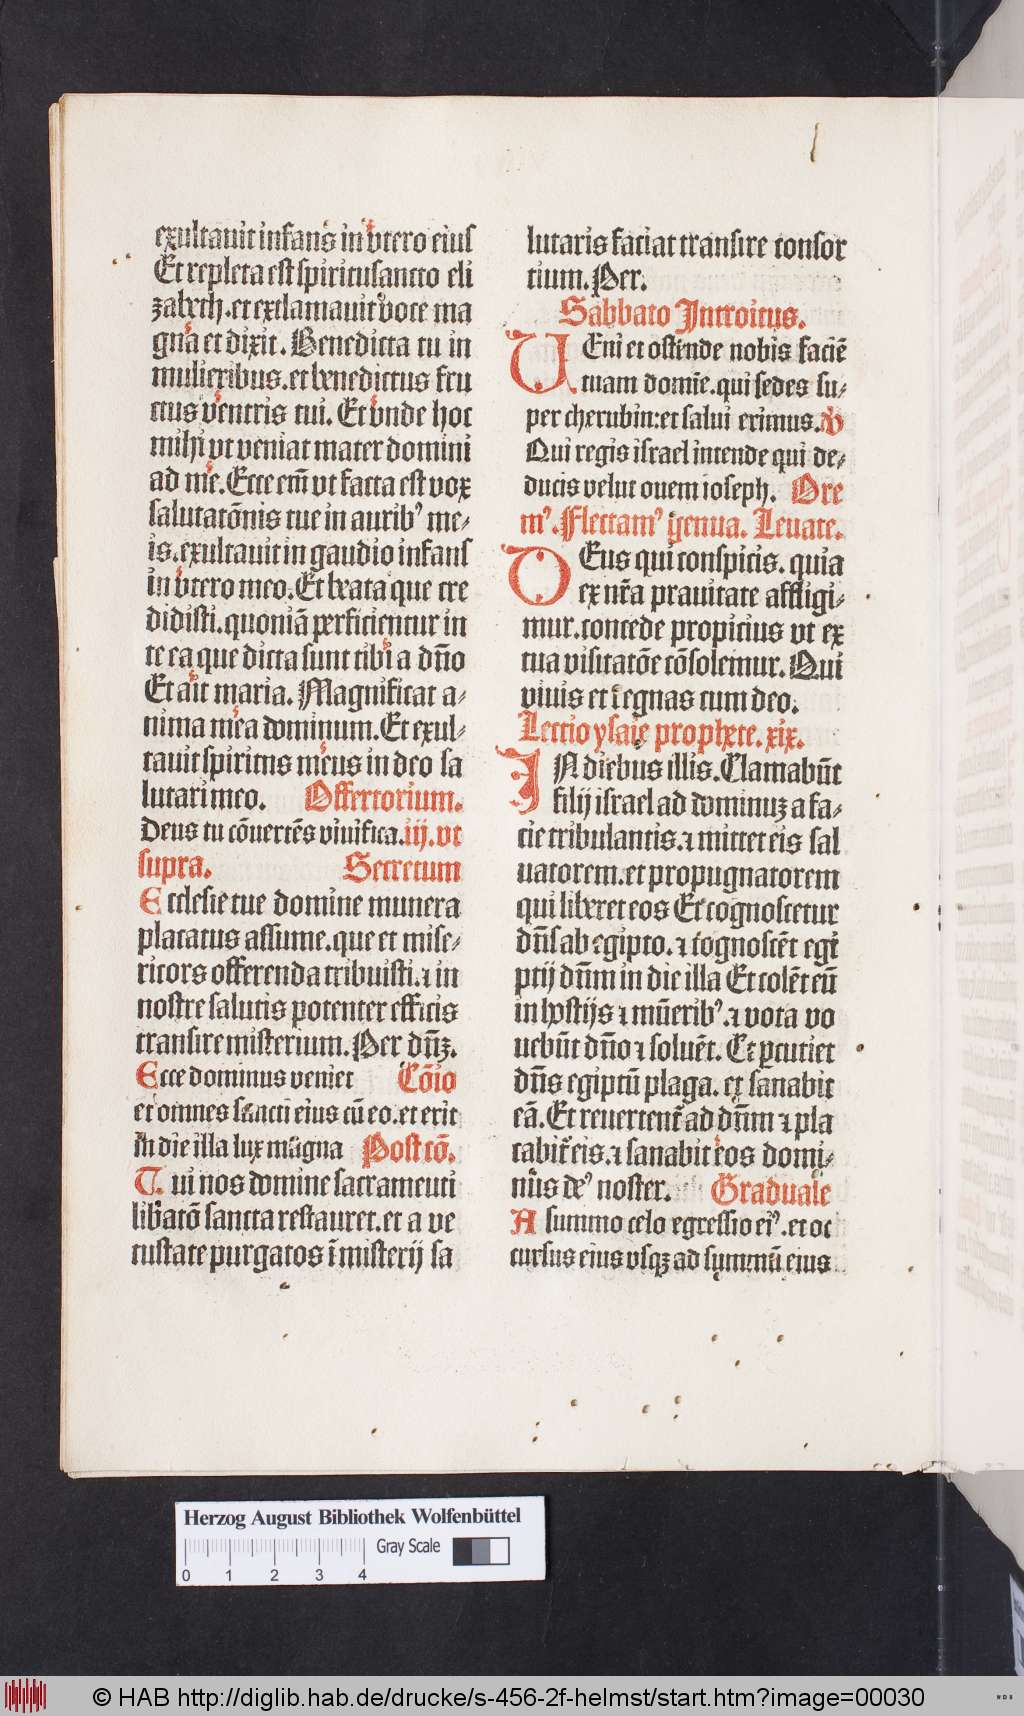 exultauit infans in vtero eius
Et repleta est spiritusancto eli
zabeth.et exclamauit voce ma
gna et dixit. Benedicta tu in
mulieribus.et benedictus fru
ctus ventris tui. Et vnde hoc
mihi vt veniat mater domini
ad me.Ecce em̄ vt facta est vox
salutatōnis tue in auribꝰ me⸗
is.exultauit in gaudio infans
in vtero meo.Et beata que cre
didisti.quoniā perficientur in
te ea que dicta sunt tibi a dn̄o
Et ait maria. Magnificat a⸗
nima mea dominum.Et exul⸗
tauit spiritus meus in deo sa
lutari meo. Offertorium.
Deus tu cōuertēs viuifica.iij.vt
supra. Secretum
Ecclesie tue domine munera
placatus assume.que et mise⸗
ricors offerenda tribuisti.⁊ in
nostre salutis potenter efficis
transire misterium.Per dn̄ꝫ.
Ecce dominus veniet Cōio
et omnes sancti eius cū eo.et erit
in die illa lux magna Postcō.
Tui nos domine sacramenti
libatō sancta restauret.et a ve
tustate purgatos ī misterij sa
lutaris faciat transire consor
tium.Per.
Sabbato Introitus.
UEni et ostende nobis faciē
tuam domīe.qui sedes su⸗
per cherubin:et salui erimus.V
Qui regis israel intende qui de⸗
ducis velut ouem ioseph. Ore
mꝰ.Flectamꝰ genua. Leuate.
DEus qui conspicis.quia
ex nr̄a prauitate affligi⸗
mur.concede propicius vt ex
tua visitatōe cōsolemur.Qui
viuis et regnas cum deo.
Lectio ysaie prophete.xix.
IN diebus illis.Clamabūt
filij israel ad dominuꝫ a fa⸗
cie tribulantis.⁊ mittet eis sal
uatorem.et propugnatorem
qui liberet eos Et cognoscetur
dn̄s ab egipto.⁊ cognoscēt egi
ptij dn̄m in die illa Et colēt eū
in hostijs ⁊ mūeribꝰ.⁊ vota vo
uebūt dn̄o ⁊ soluēt. Et ꝑcutiet
dn̄s egiptū plaga.et sanabit
eā.Et reuertent̄ ad dn̄m ⁊ pla
cabit̄ eis.⁊ sanabit eos domi⸗
nus deꝰ noster. Graduale
A summo celo egressio eiꝰ.et oc
cursus eius vsqꝫ ad summū eius
Herzog August Bibliothek Wolfenbüttel
Gray Scale
0 1 2 3 4
© HAB http://diglib.hab.de/drucke/s-456-2f-helmst/start.htm?image=00030